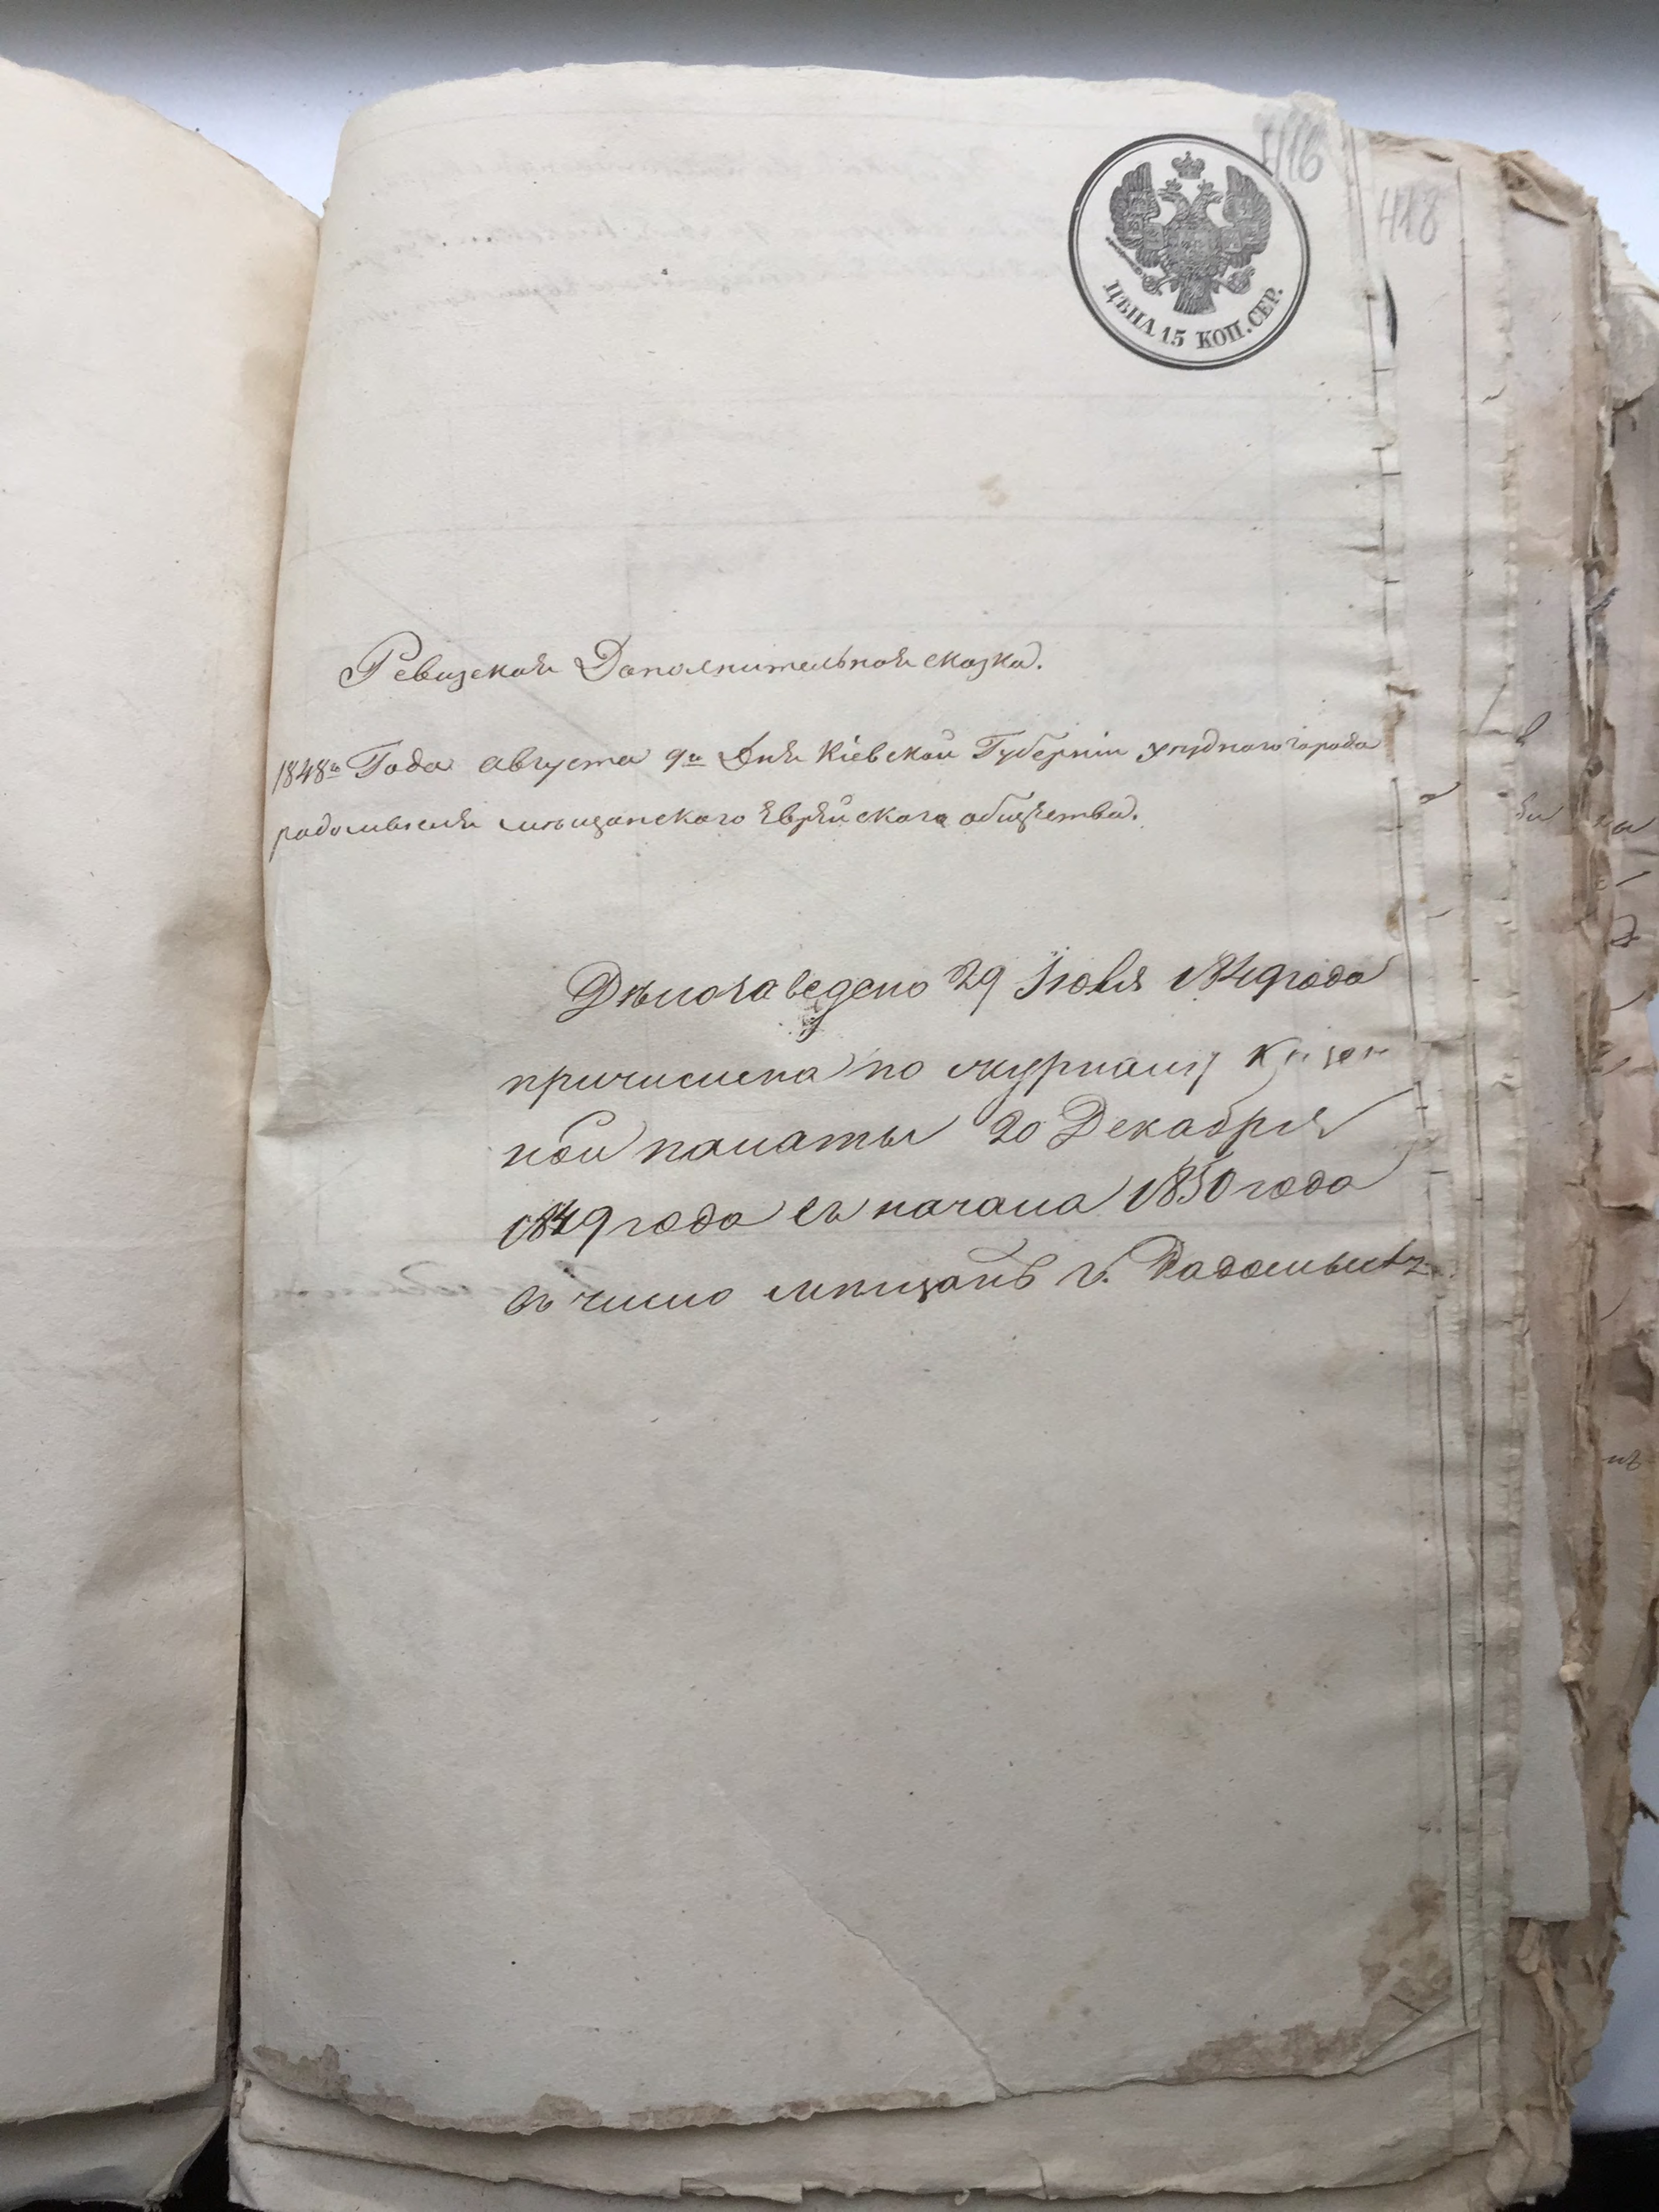 416
418
ЦѢНА 15 КОП. СЕР.
Ревизская Дополнительная сказка.
1848го Года августа 9го Дня Кіевской Губерніи уѣзднаго города
радомысля мѣщанского Еврейского общества.
Дѣло заведено 29 Іюля 1849 года
причислена по журналу Казен
ной палаты 20 Декабря
1849 года съ начала 1850 года
въ число мѣщанъ г. Радомысля